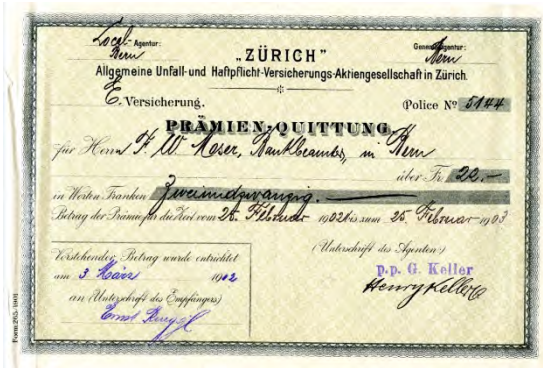 Local-Agentur: Generalagentur:
Bern Bern
„ZÜRICH"
Allgemeine Unfall- und Haftpflicht-Versicherungs-Aktiengesellschaft in Zürich.
E. Versicherung. Police Nº 5144
PRÄMIEN-QUITTUNG
für Herrn F. W. Moser, Bankbeamter, in Bern
über Fr. 22.—
in Worten Franken Zweiundzwanzig.—
Betrag der Prämie für die Zeit vom Februar 1902 bis zum 25. Februar 1903
Vorstehender Betrag wurde entrichtet (Unterschrift des Agenten)
am 3. März 1902 p.p. G. Keller
an (Unterschrift des Empfängers) Henry Keller
Ernst
Form. 265. 1901